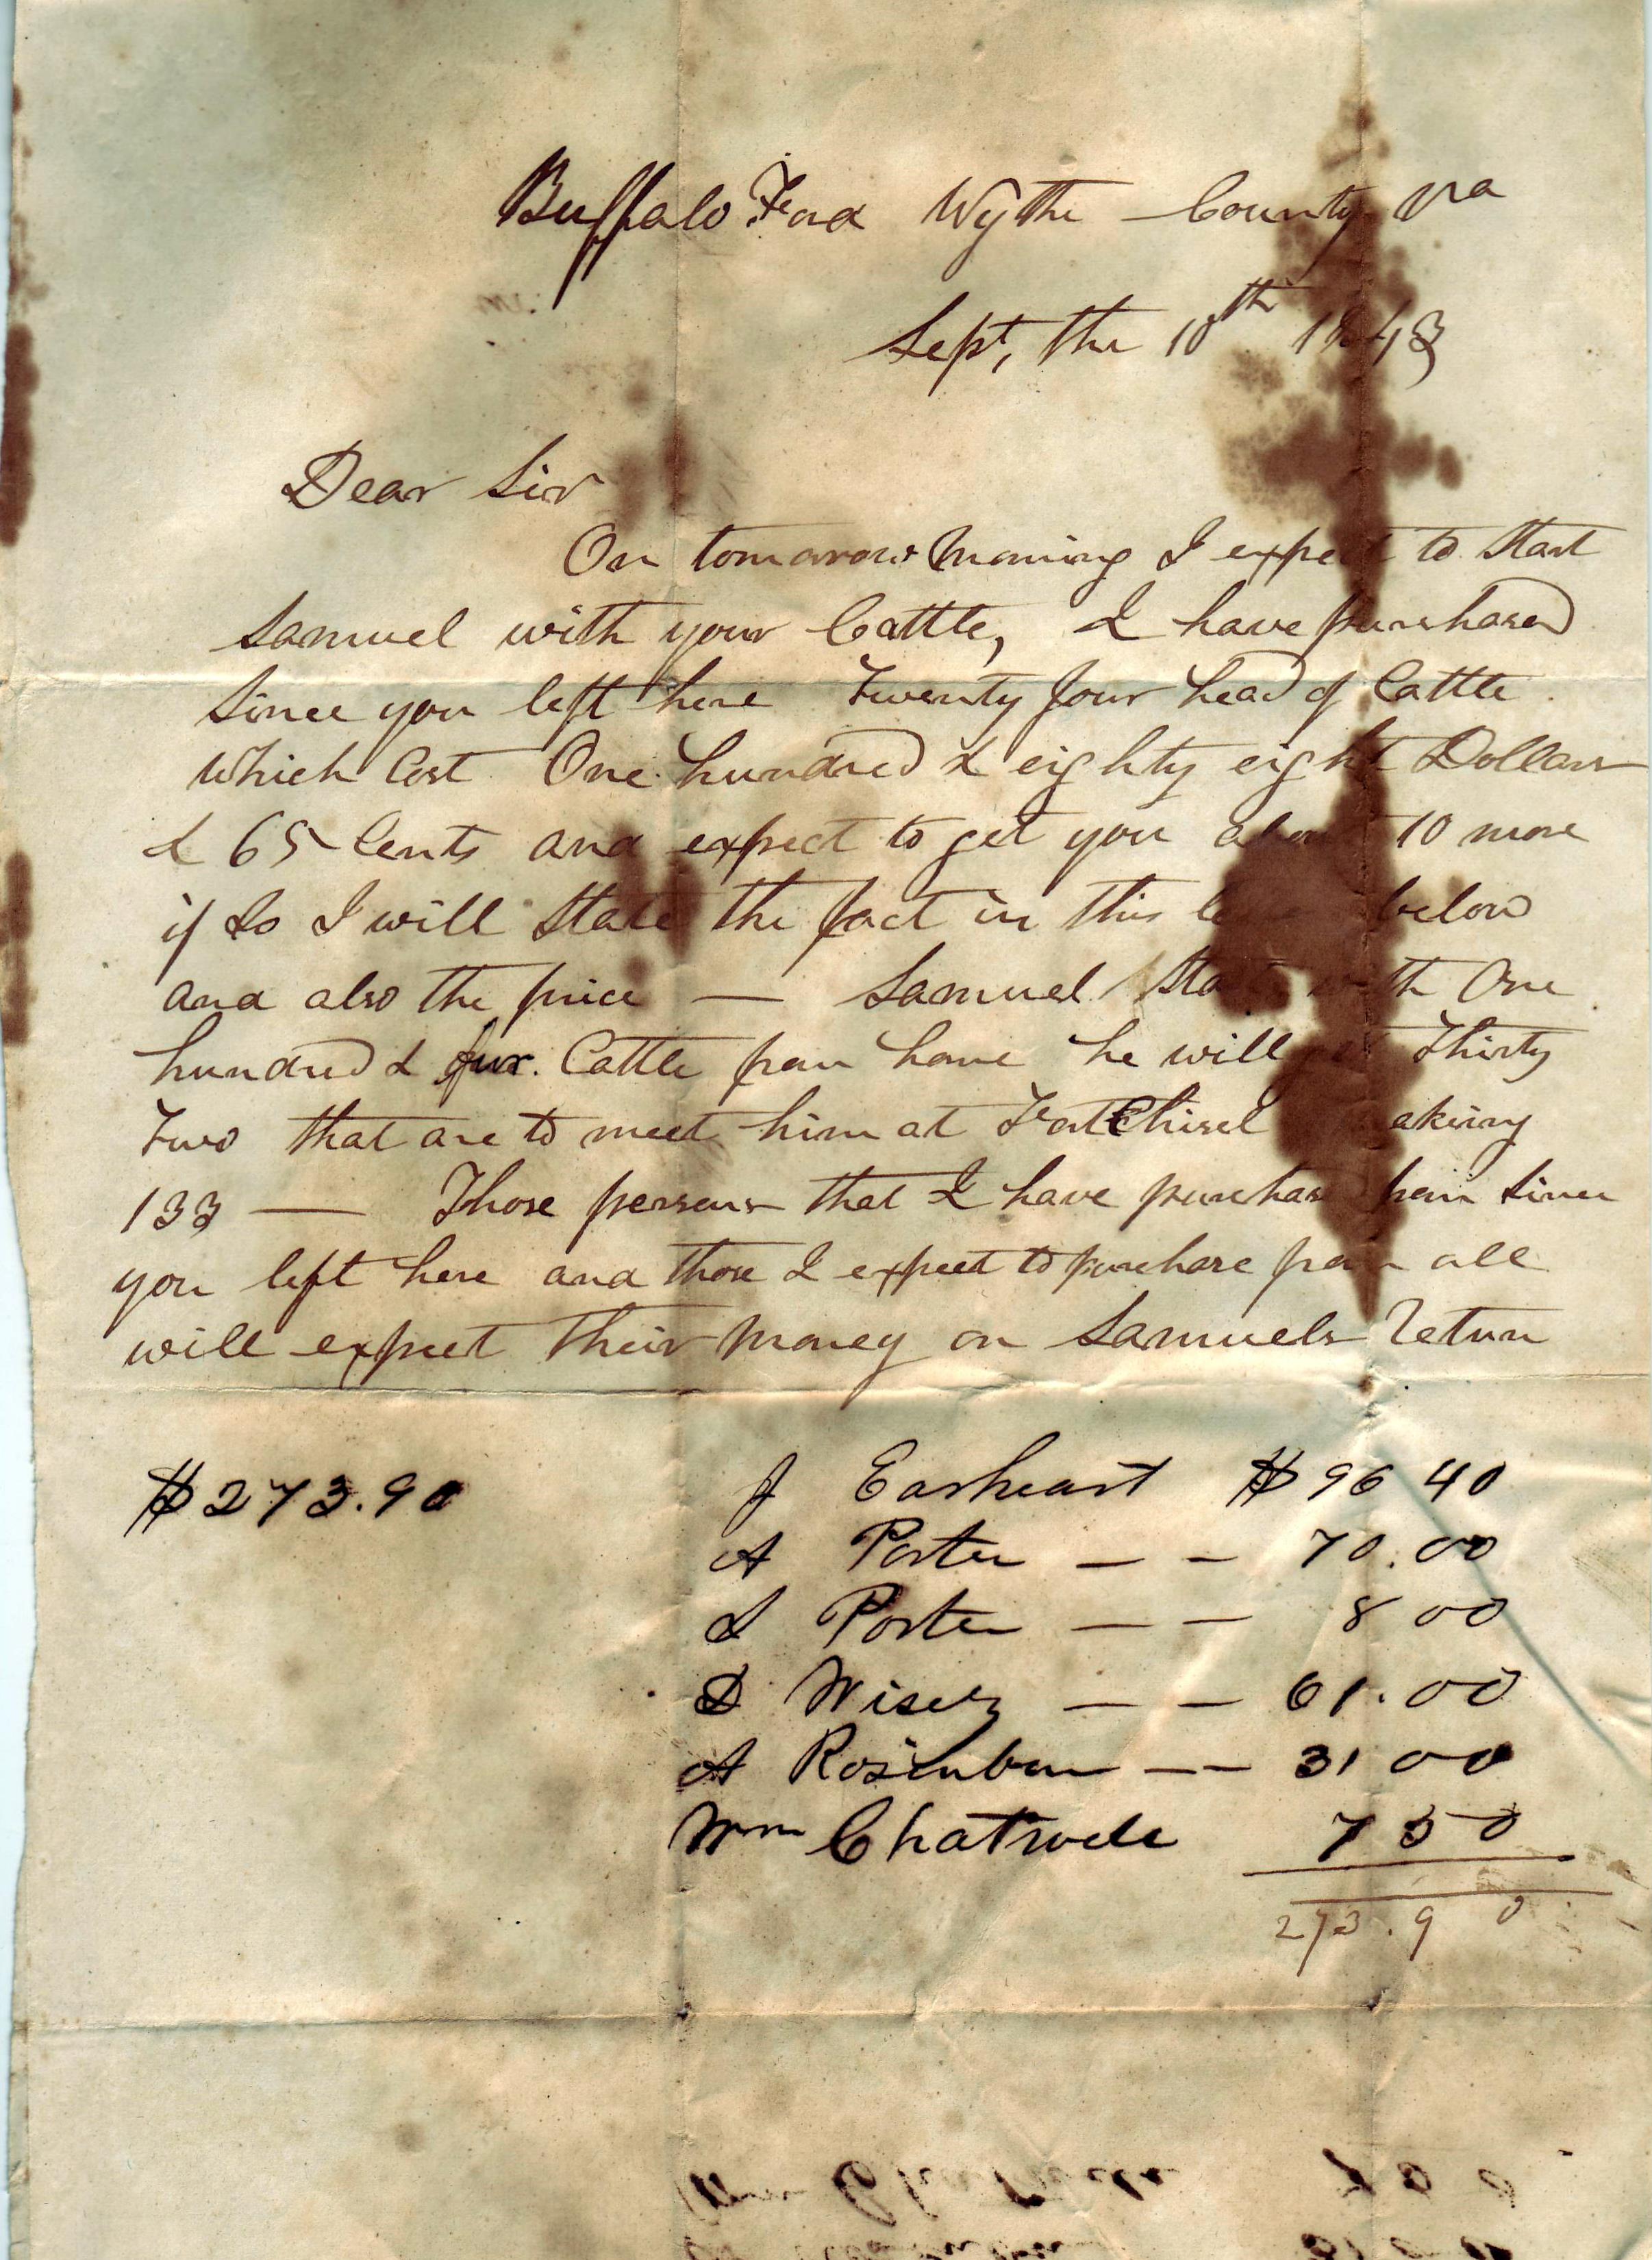 Buffalo Ford Wythe County Va
Sept, the 10th 1843
Dear Sir
On tomarow Morning I expect to Start
Samuel with your Cattle, I have purchased
Since you left here Twenty four head of Cattle
which Cost One hundred & eighty eight Dollars
& 65 Cents and expect to get you about 10 more
if So I will State the fact in this below
and also the price — Samuel Starts with One
hundred & Cattle from home he will get Thirty
Two that are to meet him at Fort Chisel making
133 — Those persons that I have purchased from Since
you left here and those I expect to purchase from all
will expect their Money on Samuels Return
$273.90 J Earheart $96 40
A Porter — — 70.00
S Porter — — 8 00
D Wisely — — 61.00
A Rosenbum — — 31 00
Wm Chatwell 7 50
273.90